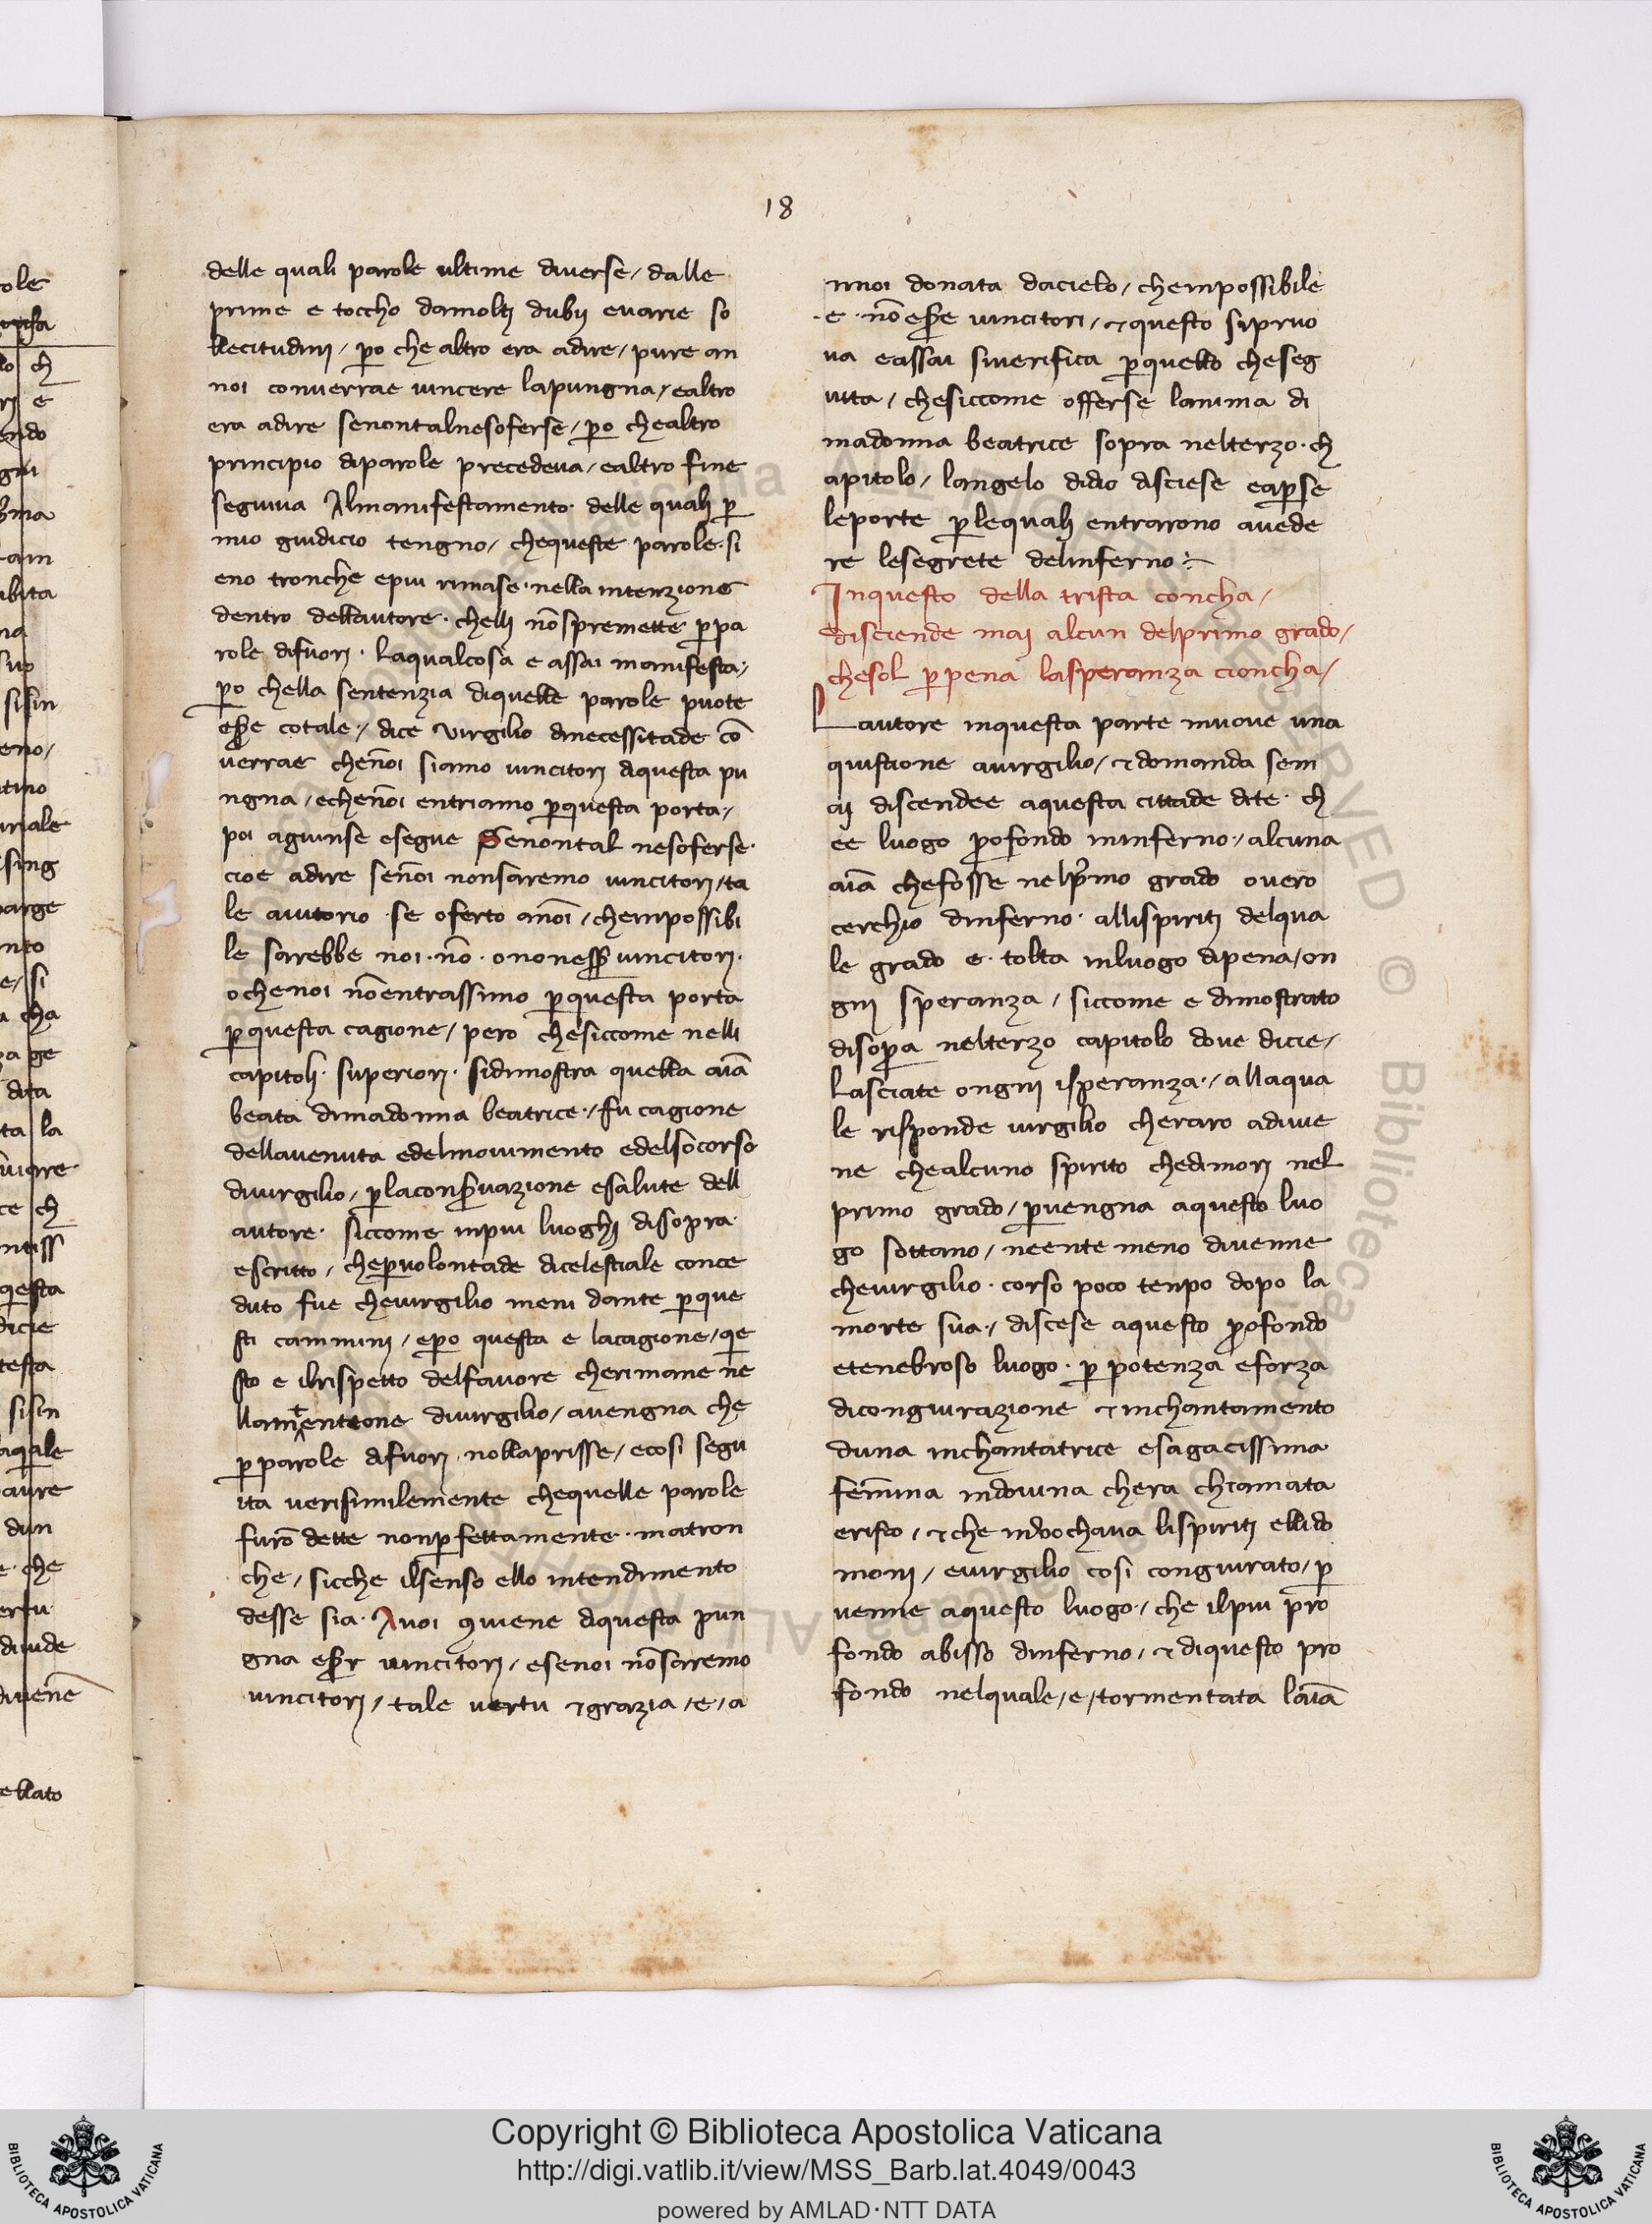 18
delle quali parole ultime diverse / dalle
prime e toccho damoltj dubij evarie so
llecitudinj / ꝑo che altro era adire / pure an
noi converrae vincere lapungna / ealtro
era adire senontalnesoferse / ꝑo chealtro
principio diparole precedeva / ealtro fine
seguiva Almanifestamento · delle qualj ꝑ
mio giudicio tengno / chequeste parole · si
eno tronche epiu rimase · nella intenzione
dentro dellautore · chellj nō spremette ꝑ pa
role difuorj · Laqualcosa e assai manifesta /
ꝑo chella sentenzia diquelle parole puote
eẜẜe cotale / dice virgilio dinecessitade cō
verrae chen̄oi siamo vincitorj diquesta pu
ngna / echen̄oi entriamo ꝑquesta porta /
poi agiunse esegue Senontal nesoferse ·
cioe adire sen̄oi nonsaremo vincitorj / ta
le aiutorio · se oferto anōi / chempossibi
le sarebbe noi · nō · ononeẜẜ vincitorj ·
ochenoi nōentrassimo ꝑquesta porta
ꝑquesta cagione / pero chesiccome nelli
capitolj · superiorj · sidimostra quella aīa
beata dimadonna beatrice / fu cagione
dellavenuta edelmovimento edelsocorso
divirgilio / ꝑlaconẜvazione esalute dell
autore · siccome inpiu luoghj disopra
escritto / cheꝑvolontade dicelestiale conce
duto fue chevirgilio meni dante ꝑque
sti camminj / eꝑo questa e lacagione / q̄e
sto e ilrispetto delfavore cherimane ne
llamententione divirgilio / avengna che
ꝑparole difuorj nollaprisse / ecosi segu
ita verisimilemente chequelle parole
furō dette nonꝑfettamente · matron
che / sicche ilsenso ello intendimento
desse sia · Anoi ꝯviene diquesta pun
gna eẜẜr vincitorj / esenoi nōsaremo
vincitorj / tale vertu ⁊grazia / e / a
nnoi donata dacielo / chempossibile
· e · nōeẜẜe vincitori / ⁊questo sipruo
va eassai siverifica ꝑquello cheseg
uita / chesiccome offerse lanima di
madonna beatrice sopra nelterzo · ch
apitolo / langelo didio disciese eaꝑse
leporte ꝑlequalj entrarono avede
re lesegrete delinferno :~
Inquesto della trista concha /
edisciende maj alcun delprimo grado /
chesol ꝑ pena lasperanza cioncha /
Lautore inquesta parte muove una
quistione avirgilio / ⁊domanda sem
aj discendee aquesta cittade dite · ch
ee luogo ꝓfondo ininferno / alcuna
aīa chefosse nelpͥmo grado overo
cerchio dinferno · allispiritj delqua
le grado e · tolta inluogo dipena / on
gnj speranza / siccome e dimostrato
disoꝑa nelterzo capitolo dove dicie /
Lasciate ongnj isperanza / allaqua
le risponde virgilio cheraro adive
ne chealcuno spirito chedimorj nel
primo grado / ꝑvengna aquesto luo
go sottano / neente meno divenne
chevirgilio · corso poco tenpo dopo la
morte sua / discese aquesto ꝓfondo
etenebroso luogo · ꝑ potenza eforza
dicongiurazione ⁊inchantamento
duna inchantatrice esagacissima
fem̄ina indovina chera chiamata
erisco / ⁊che invochava lispiritj ellido
monj / evirgilio cosi congiurato / ꝑ
venne aquesto luogo / che ilpiu pro
fondo abisso dinferno / ⁊ diquesto pro
fondo nelquale / e / tormentata laīa
Copyright © Biblioteca Apostolica Vaticana
http://digi.vatlib.it/view/MSS_Barb.lat.4049/0043
powered by AMLAD·NTT DATA